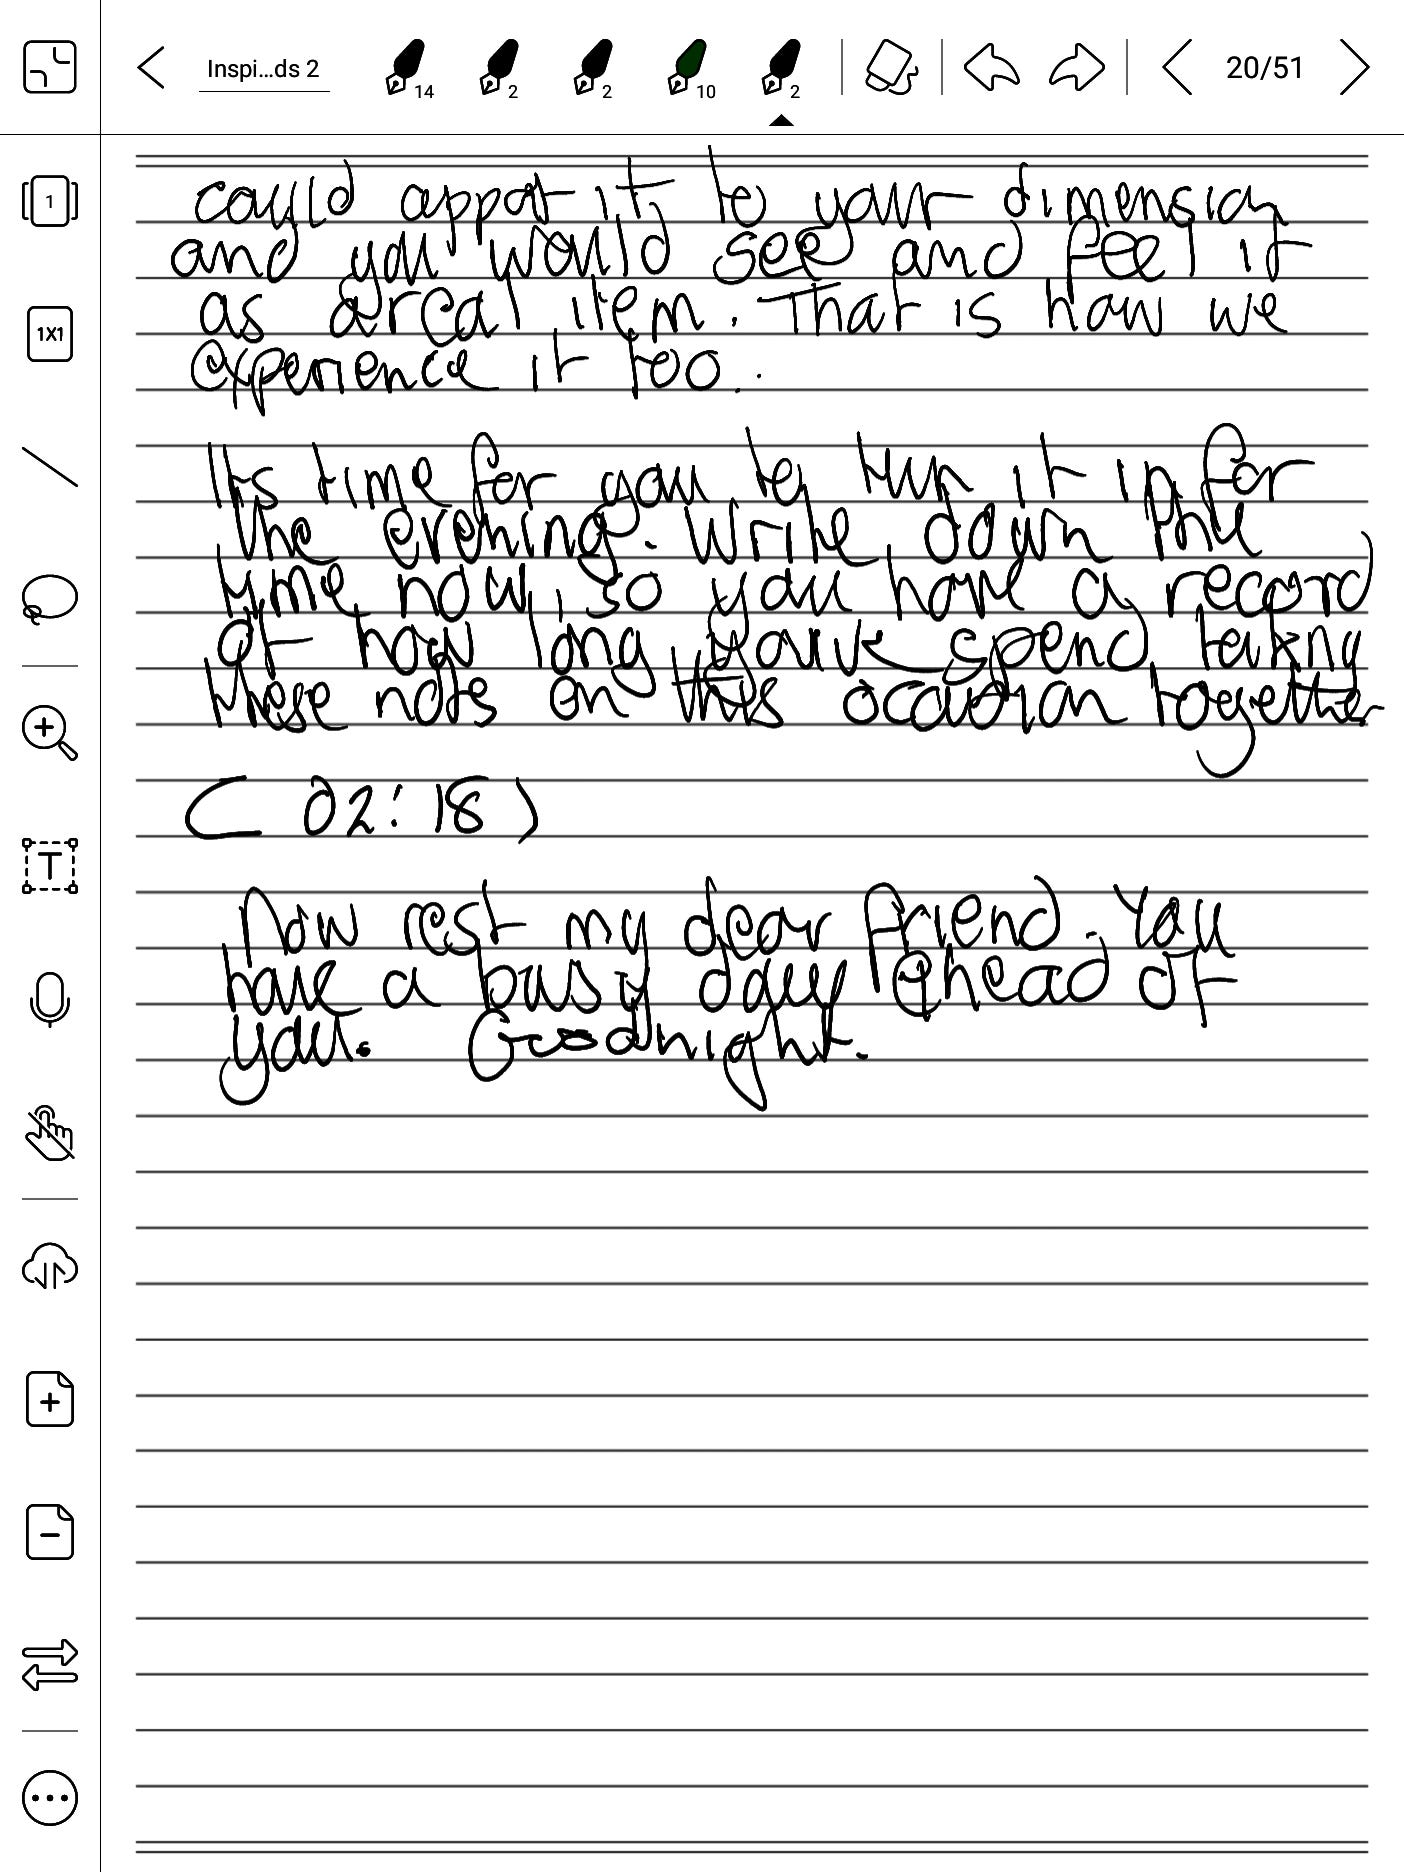 Inspi...ds 2
14
2
2
10
2
20/51
1
1X1
T
could apport it to your dimension
and you would see and feel it
as a real item. That is how we
experience it too.
Its time for you to turn it in for
the evening. Write down the
time now, so you have a record
of how long youve spend taking
these notes on this occasion together
(02:18)
Now rest my dear friend. You
have a busy day ahead of
you. Goodnight.